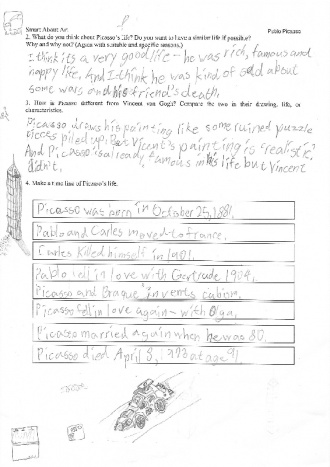 Smart About Art
Pablo Picasso
2. What do you think about Picasso's life? Do you want to have a similar life if possible?
Why and why not? (Agree with suitable and specific reasons.)
I think its a very good life - he was rich, famous and
happy life. And I think he was kind of sad about
some wars and his friend's death.
3. How is Picasso different from Vincent van Gogh? Compare the two in their drawing, life, or
characteristics.
Picasso draws his painting like some ruined puzzle
pieces piled up. But Vicent's painting is "realistic."
And Picasso is already famous in his life but Vincent
didn't.
4. Make a time line of Picasso's life.
Picasso was born in October 25, 1881.
Pablo and Carles moved to france.
Carles killed himself in 1901.
Pablo fell in love with Gertrude 1904.
Picasso and Braque invents cubism.
Picasso fell in love again - with Olga.
Picasso married again when he was 80.
Picasso died April 8, 1973 at age 91